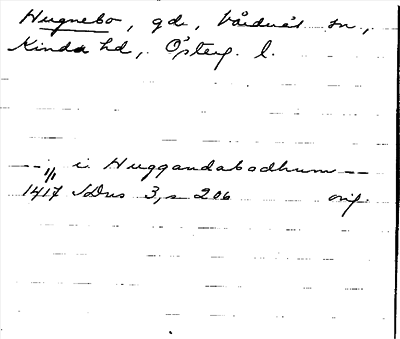 Hugnebo, gde, Vårdnäs sn,
Kinda hd, Österg. l.
-- i Huggandabodhum --
1/1
1417 SDns 3, s 206 orig.